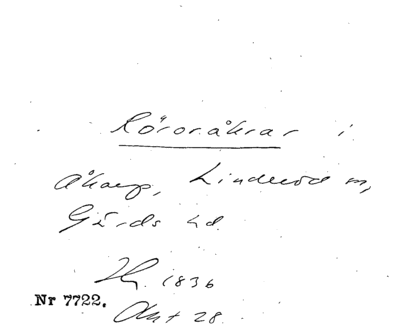 Röroråkrar i
Åkarp, Linderöd sn,
Gärds hd.
1836
Nr 7722.
Akt 28.